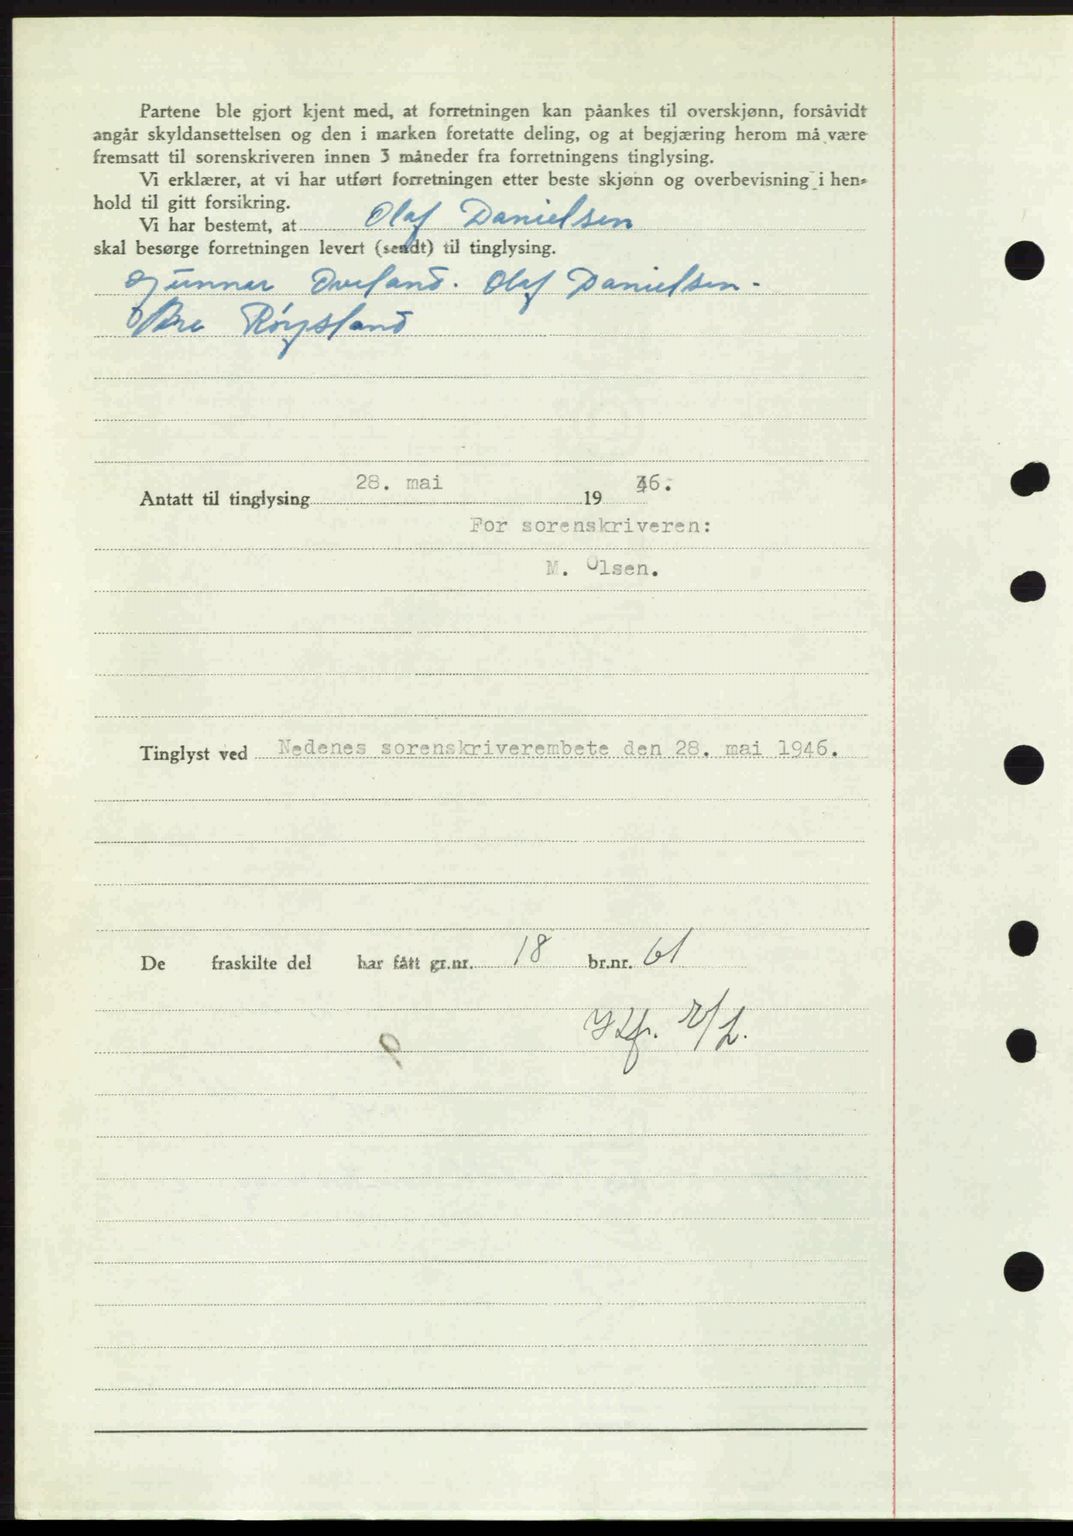 Partene ble gjort kjent med, at forretningen kan påankes til overskjønn, forsåvidt
angår skyldansettelsen og den i marken foretatte deling, og at begjæring herom må være
fremsatt til sorenskriveren innen 3 måneder fra forretningens tinglysing.
Vi erklærer, at vi har utført forretningen etter beste skjønn og overbevisning i hen-
hold til gitt forsikring.
Vi har bestemt, at Olaf Danielsen
skal besørge forretningen levert (sendt) til tinglysing.
Gunnar Øveland. Olaf Danielsen.
Røysland
Antatt til tinglysing 28. mai 19 46.
For sorenskriveren:
M. Olsen.
Tinglyst ved Nedenes sorenskriverembete den 28. mai 1946.
De fraskilte del har fått gr.nr. 18 br.nr. 61